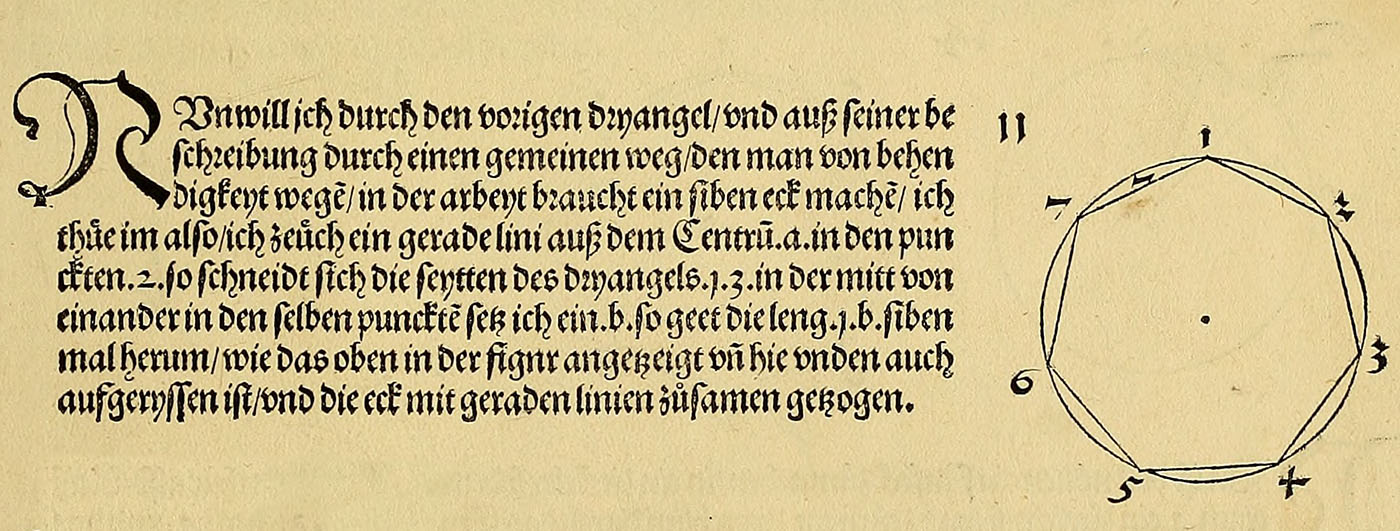 NVn will ich durch den vorigen dryangel/vnd auß seiner be
schreibung durch einen gemeinen weg/den man von behen
digkeyt wegẽ/in der arbeyt braucht ein siben eck machẽ/ ich
thůe im also/ich zeüch ein gerade lini auß dem Centrũ.a.in den pun
ckten.2.so schneidt sich die seytten des dryangels.1.3.in der mitt von
einander in den selben puncktẽ setz ich ein.b.so geet die leng.1.b.siben
mal herum/wie das oben in der fignr angetzeigt vñ hie vnden auch
aufgeryssen ist/vnd die eck mit geraden linien zůsamen getzogen.
11
1
7
2
6
3
5
4